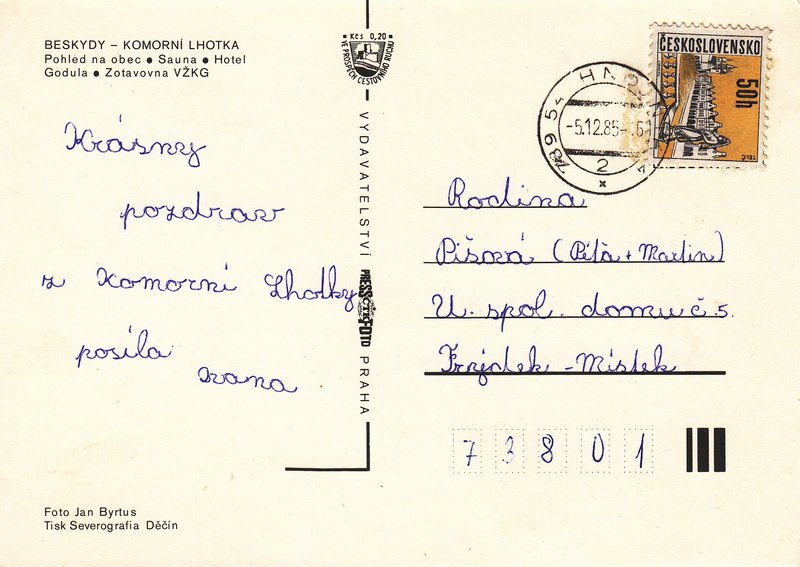 BESKYDY – KOMORNÍ LHOTKA
Pohled na obec ● Sauna ● Hotel
Godula ● Zotavovna VŽKG
Krásný
pozdrav
z Komorní Lhotky
posílá
Ivana
Foto Jan Byrtus
Tisk Severografia Děčín
Kčs 0,20
VE PROSPĚCH CESTOVNÍHO RUCHU
VYDAVATELSTVÍ
PRESSFOTO
ČTK
PRAHA
ČESKOSLOVENSKO
50h
TELČ
739 54
-5.12.85-
2
Rodina
Píšová (Péťa + Martin)
U. spol. domu č 5.
Frýdek - Místek
73801